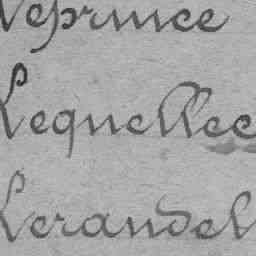 Leprince
Lequellec
Lerandel